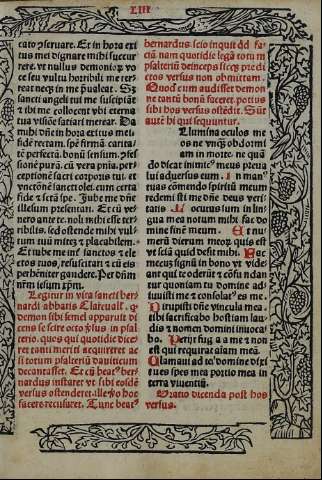 LIII
cato pseruare. Et in hora exi
tus mei dignare mihi succur
rere. vt nullus demonis vo
ce seu vultu horribili me ter
reat necq; in me pualeat. Sz
sancti angeli tui me suscipiāt
z ibi me collocent vbi eterna
tua visiōe satiari merear. Da
mihi dñe in hora exitus mei
fidē rectam. spē firmā. carita
tē perfectā. bonū sensum. pfes
sionē purā. cū vera pnia. per
ceptionē sacri corporis tui. et
vnctionē sancti olei. cum certa
fide z sctā spe. Jube me dñe
illesum presentari. Et cū ve
nero ante te. noli mihi esse ter
ribilis. sed ostende mihi vul
tum tuū mitez z placabilem.
Et iube me inf sanctos z ele
ctos tuos. resuscitari z cū eis
perhēniter gaudere. Per dnm
nrm iesum xpm.
Legitur in vita sancti ber
nardi abbatis Clareuall. q
demon sibi semel apparuit di
cens se scire octo vsus in psal
terio. quos qui quotidie dice
ret tanti meriti acquireret ac
si totum psalteriū dauiticum
decantasset. Et cū beat ber
nardus instaret vt sibi eosdē
versus ostenderet. ille vo hoc
facere recusaret. Tunc beat
bernardus. scio inquit qd fa
ciā nam quotidie legā totum
psalteriū deinceps sicqz predi
ctos versus non obmittam.
Quod cum audisset demon
ne tantū bonū faceret. potius
sibi hos versus ostēdit. Sūt
autē hi qui sequuntur.
Illumina oculos me
os ne vnq obdormi
am in morte. ne quā
do dicat inimic meus preua
lui aduersus eum. In man
tuas cōmendo spiritū meum
redemisti me dñe deus veri
tatis. Locutus sum in lin
gua mea notum mihi fac do
mine finē meum. Et nu
merū dierum meoz. quis est
vt sciā quid desit mihi. Fac
mecuz signū in bono vt vide
ant qui te oderūt z cōfundan
tur quoniam tu domine ad
iuuisti me z consolat es me.
Dirupisti dñe vincula mea.
tibi sacrificabo hostiam lau
dis z nomen domini inuoca
bo. Perijt fuga a me z non
est qui requirat aīam meā
Clamaui ad te domine dixi
tu es spes mea portio mea in
terra viuentiū.
Oratio dicenda post hos
versus.